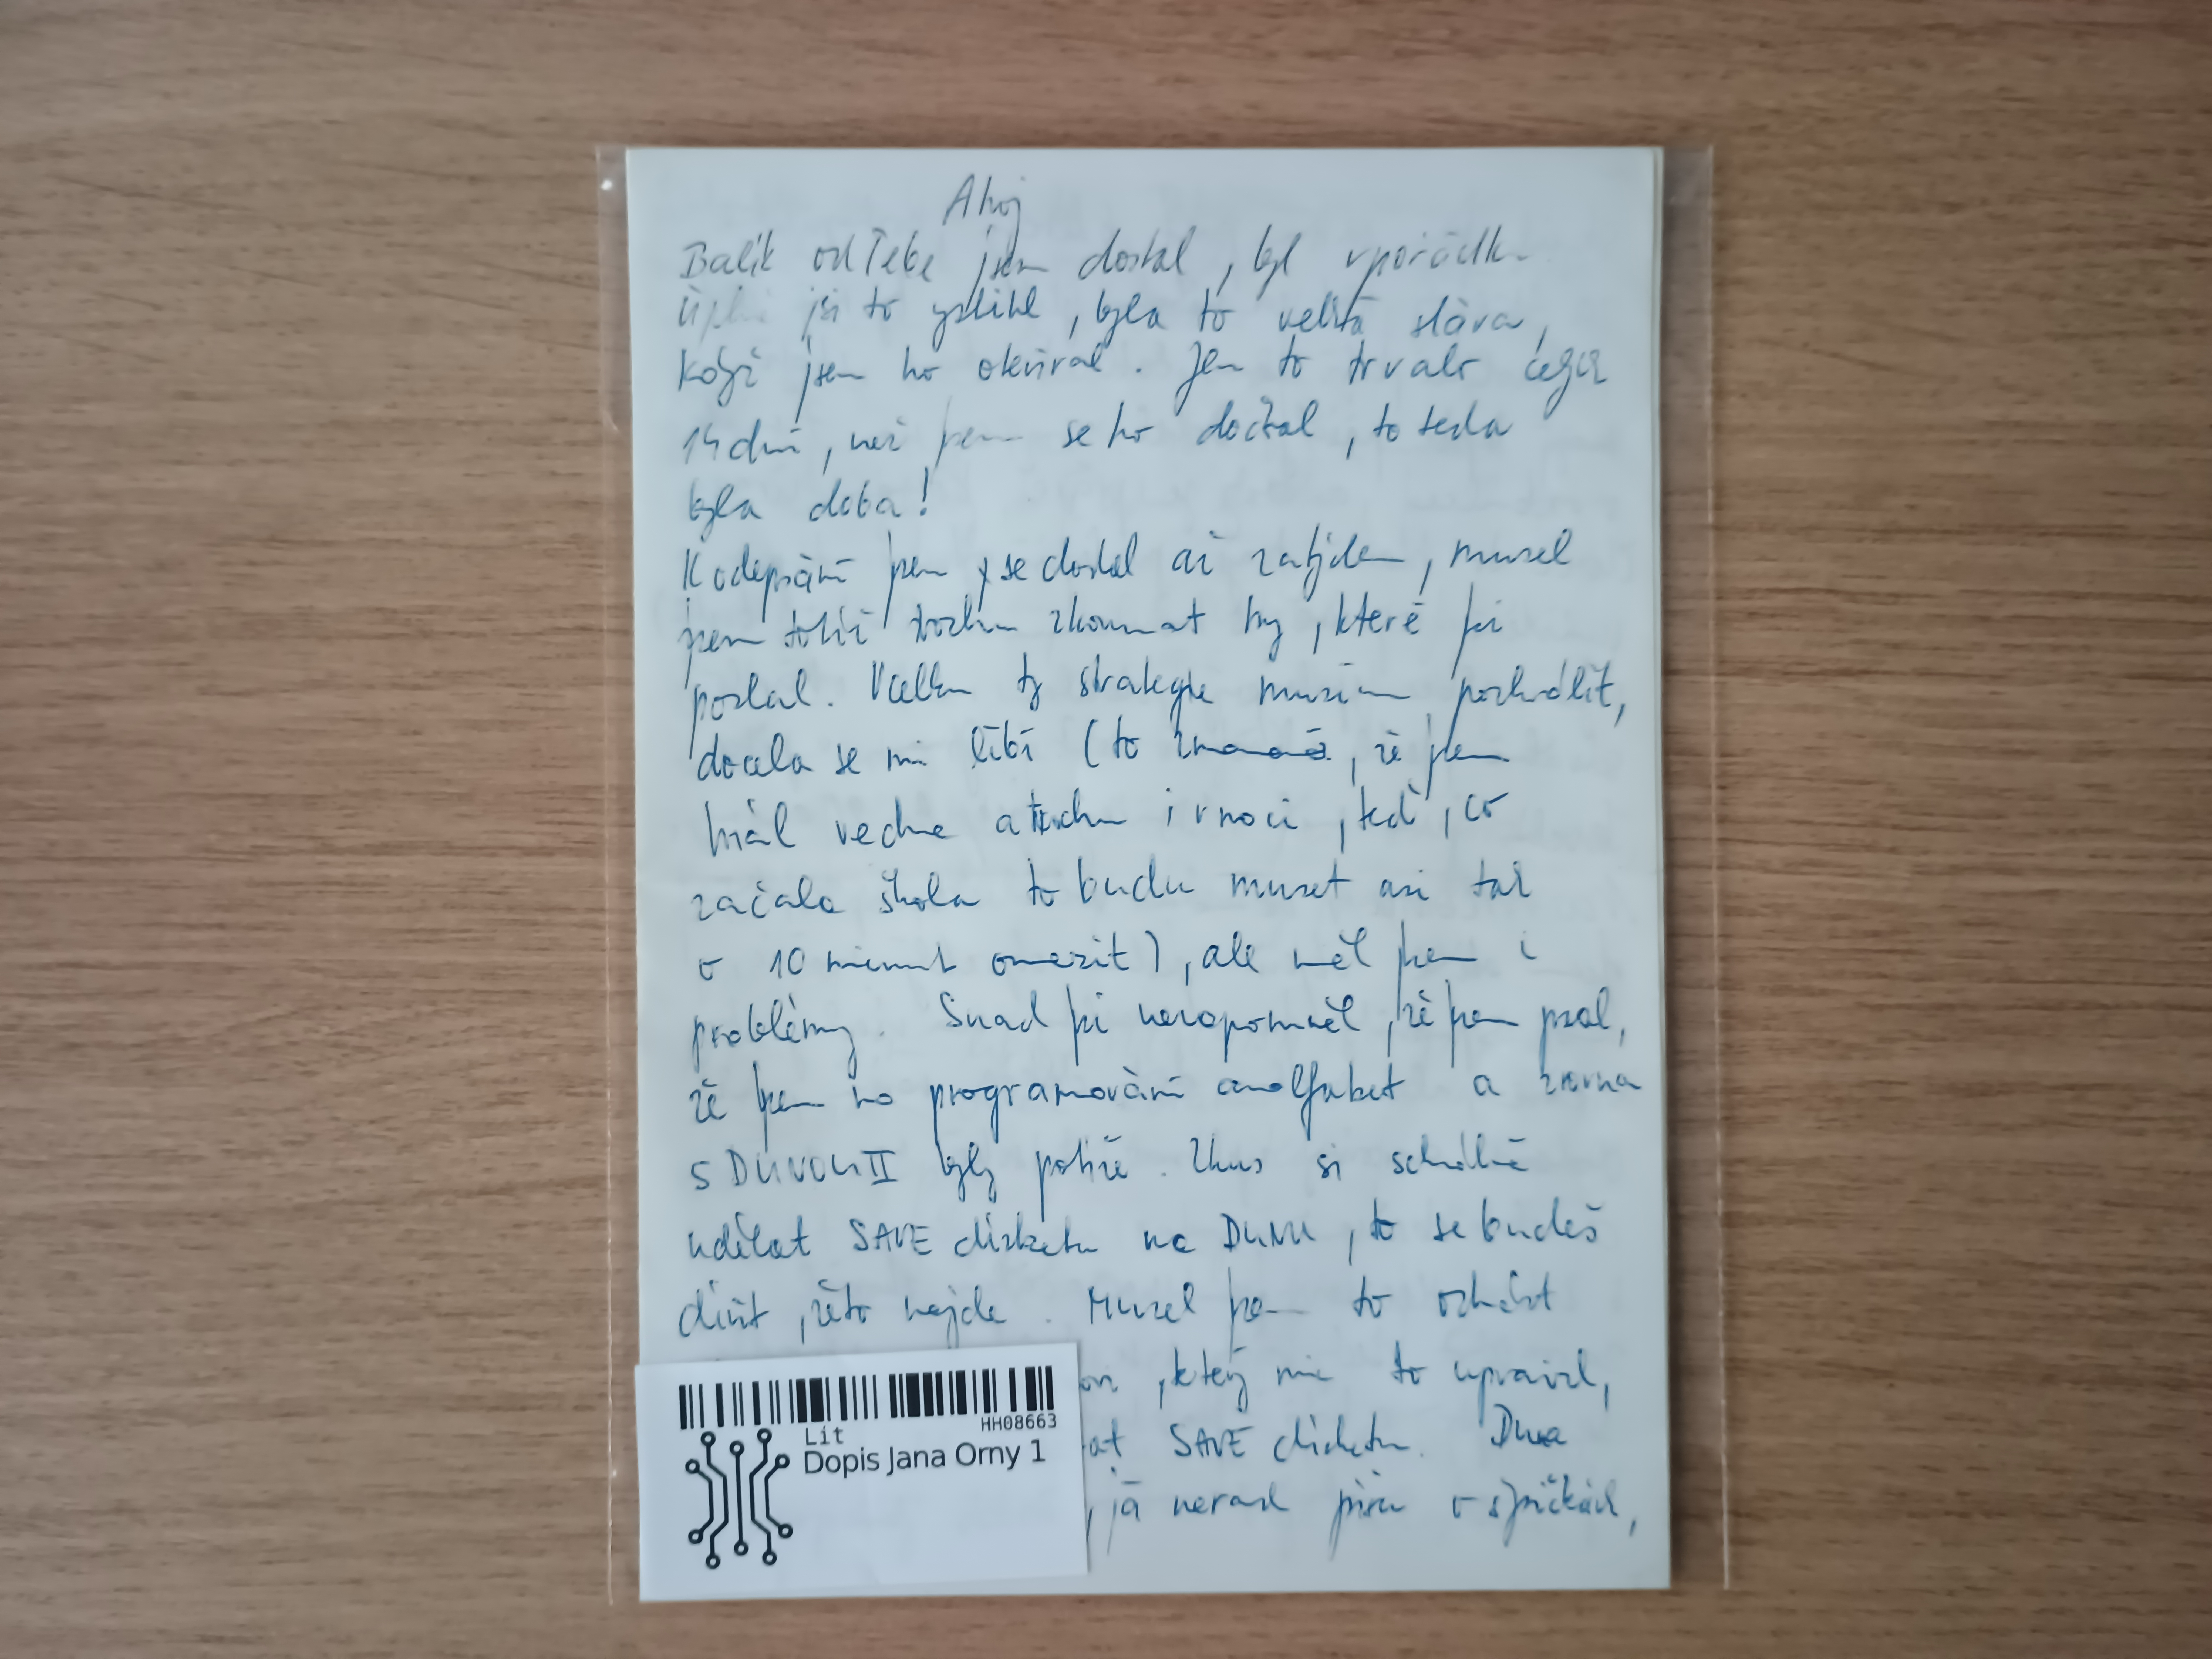 Ahoj
Balík od Tebe jsem dostal, byl vpořádku
Úplně jsi to vystihl, byla to veliká sláva,
když jsem ho otevíral. Jen to trvalo celých
14 dní, než jsem se ho dočkal, to teda
byla doba!
K odepsání jsem se dostal až za týden, musel
jsem totiž trochu zkoumat hry, které jsi
poslal. Vcelku ty strategie musím pochválit,
docela se mi líbí (to znamená, že jsem
hrál ve dne a trochu i v noci, teď, co
začala škola to budu muset asi tak
o 10 minut omezit), ale měl jsem i
problémy. Snad jsi nezapomněl, že jsem psal,
že jsem na programování analfabet a zrovna
s DUNOU II byly potíže. Zkus si schválně
udělat SAVE disketu na DUNU, to se budeš
divit, že to nejde. Musel jsem to
, který mi to upravil,
at SAVE disketu. Duna
, já nerad píšu o špičkách,
HH08663
Lit
Dopis Jana Orny 1